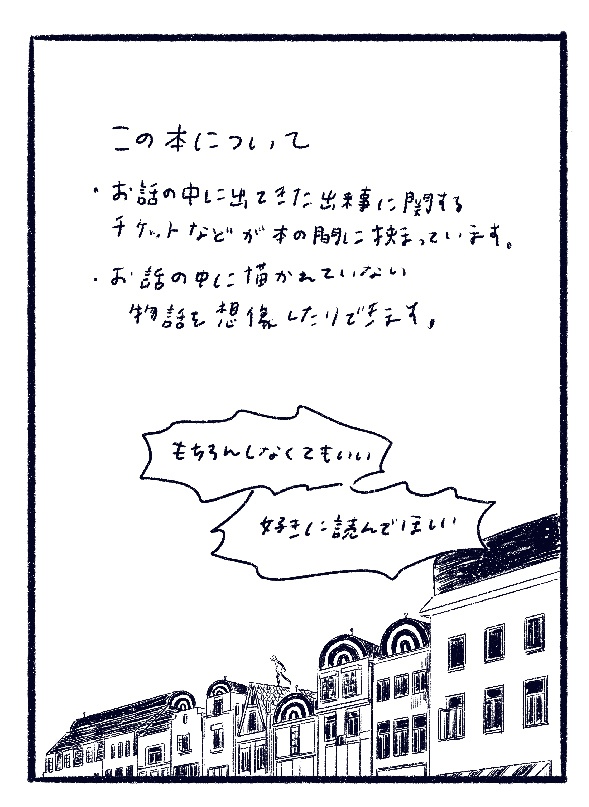 この本について
・お話の中に出てきた出来事に関する
チケットなどが本の間に挟まっています。
・お話の中に描かれていない
物話を想像したりできます。
もちろんしなくてもいい
好きに読んでほしい